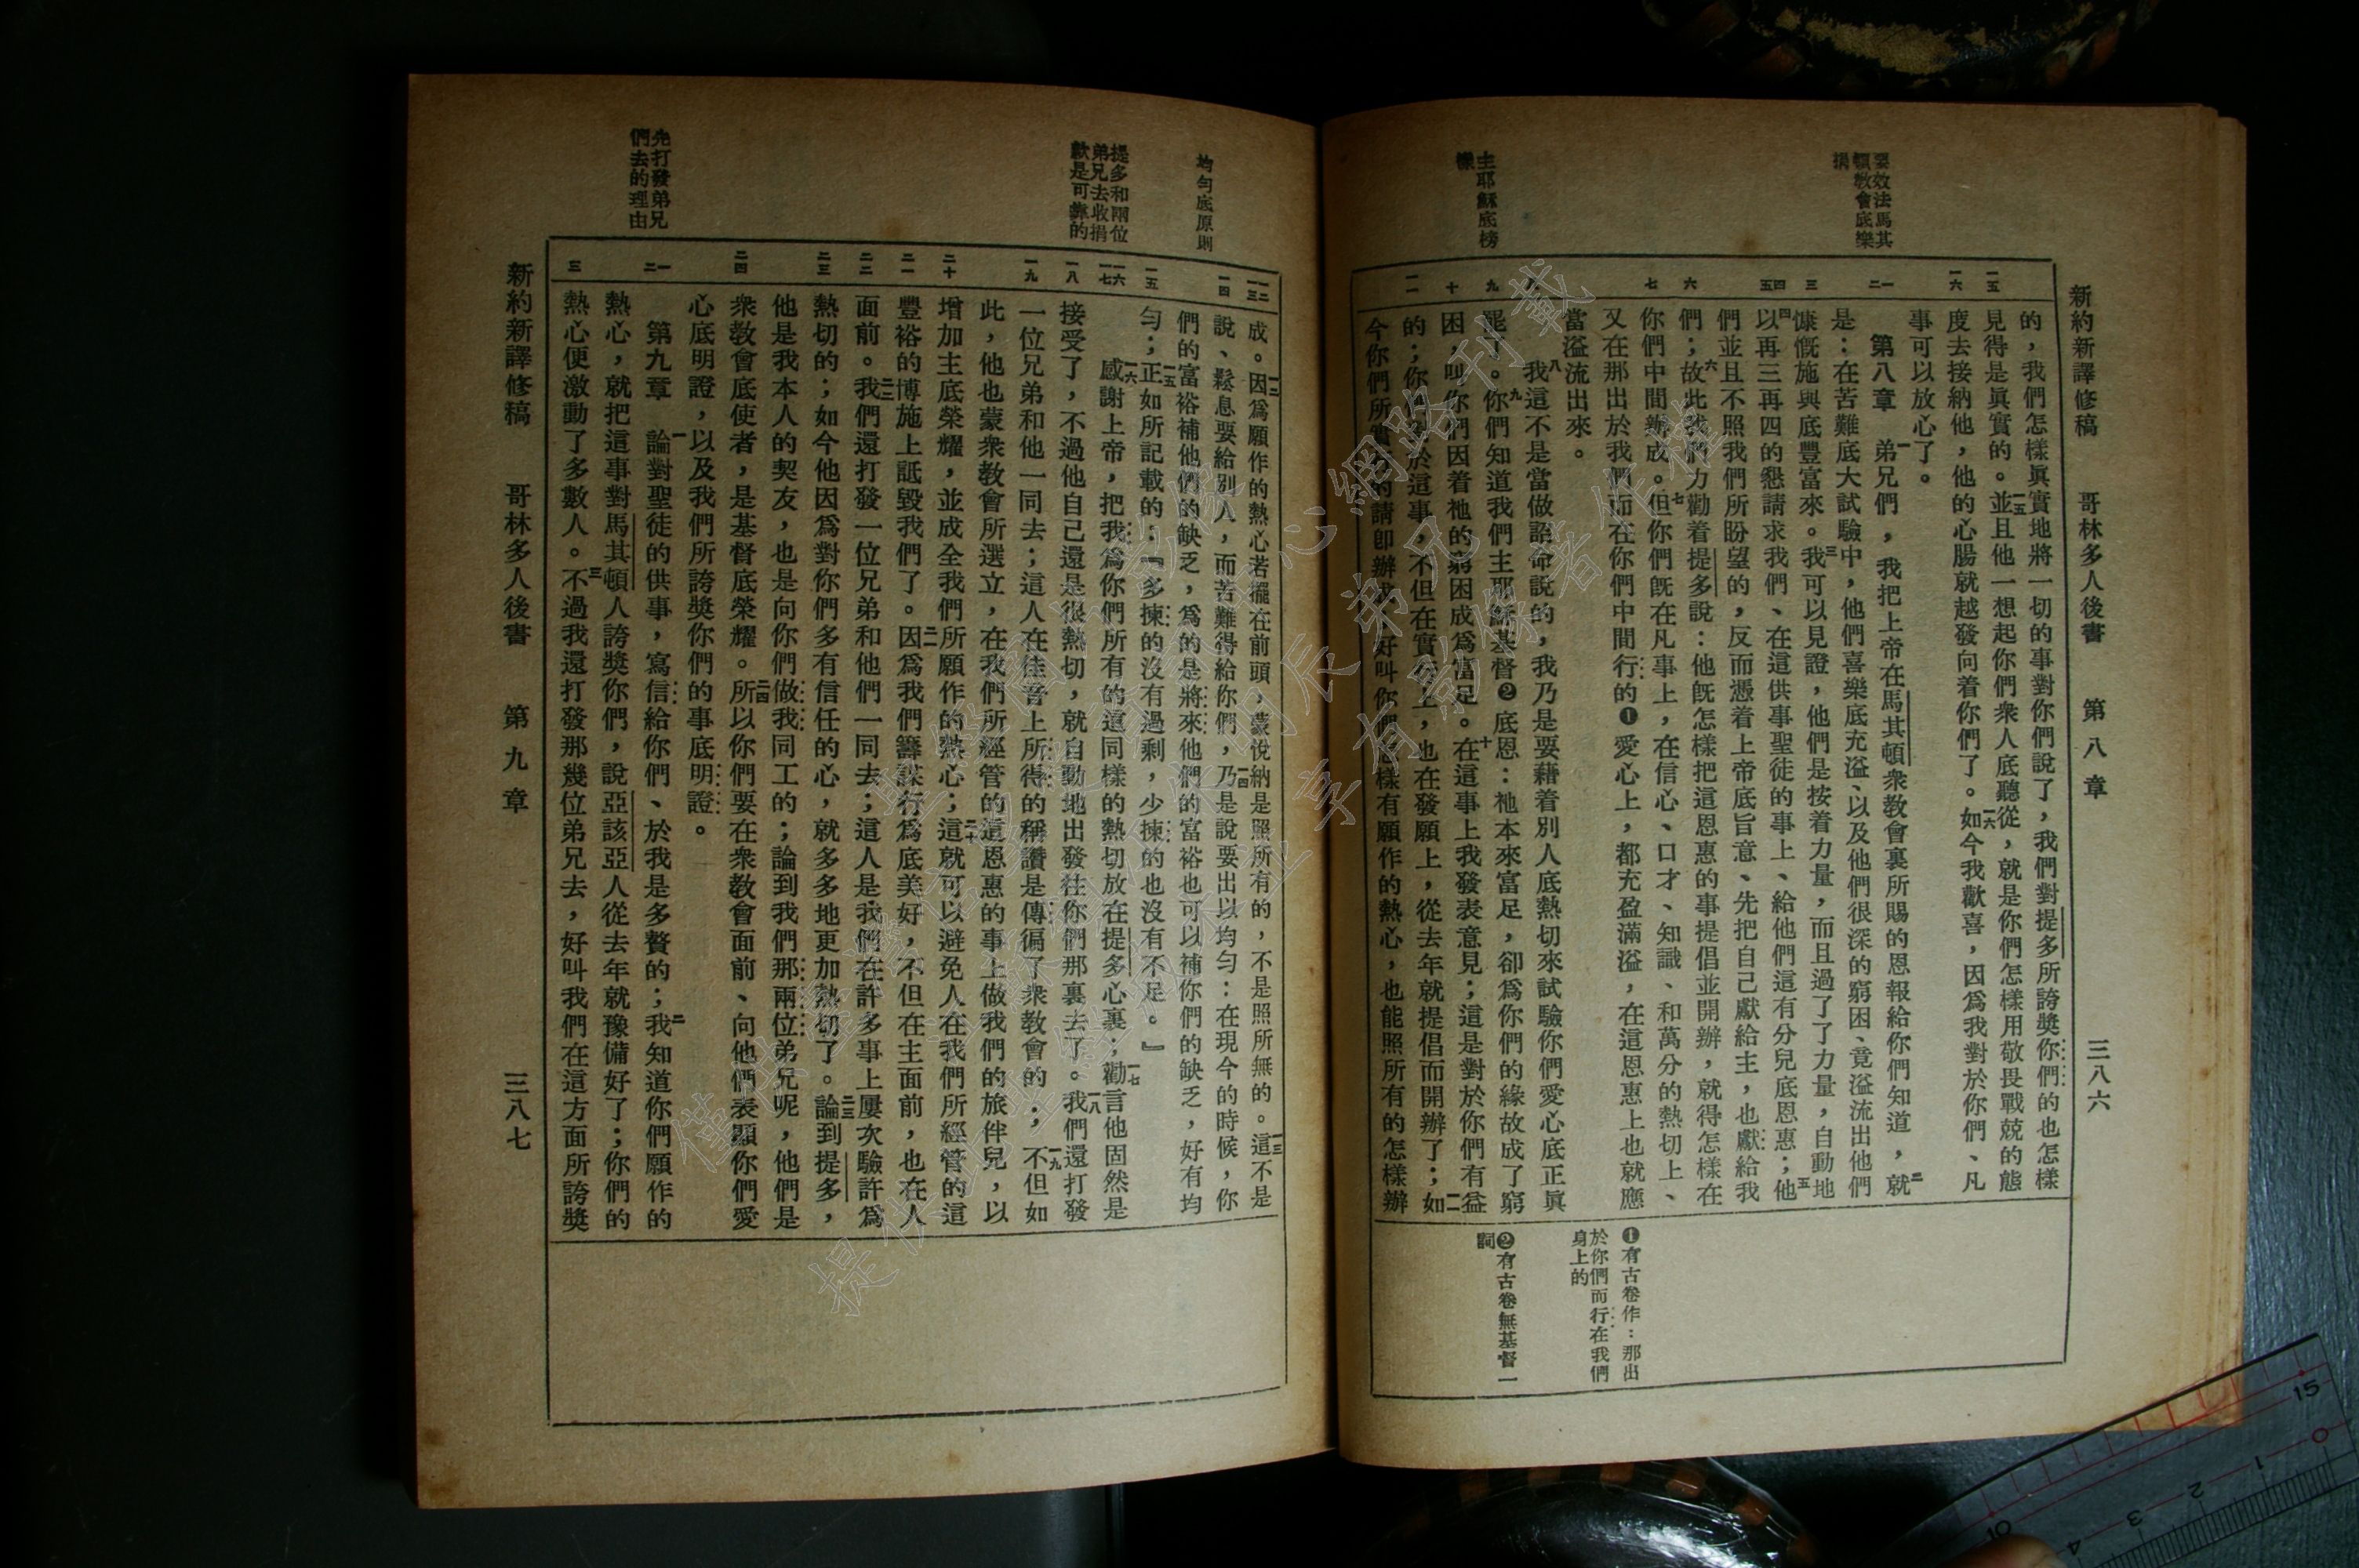 新約新譯修稿　哥林多人後書　第八章　三八六
要效法馬其
頓教會底樂
捐
主耶穌底榜
樣
一五
一六
一二
三
四五
六
七
八
九
十
一一
的，我們怎樣眞實地將一切的事對你們說了，我們對提多所誇獎你們的也怎樣
見得是眞實的。一五並且他一想起你們衆人底聽從，就是你們怎樣用敬畏戰兢的態
度去接納他，他的心腸就越發向着你們了。一六如今我歡喜，因爲我對於你們、凡
事可以放心了。
第八章　一弟兄們，我把上帝在馬其頓衆教會裏所賜的恩報給你們知道，二就
是：在苦難底大試驗中，他們喜樂底充溢、以及他們很深的窮困、竟溢流出他們
慷慨施與底豐富來。三我可以見證，他們是按着力量，而且過了力量，自動地
四以再三再四的懇請求我們、在這供事聖徒的事上、給他們這有分兒底恩惠；五他
們並且不照我們所盼望的，反而憑着上帝底旨意、先把自己獻給主，也獻給我
們；六故此我們力勸着提多說：他旣怎樣把這恩惠的事提倡並開辦，就得怎樣在
你們中間辦成。七但你們旣在凡事上，在信心、口才、知識、和萬分的熱切上、
又在那出於我們而在你們中間行的❶愛心上，都充盈滿溢，在這恩惠上也就應
當溢流出來。
八我這不是當做詔命說的，我乃是要藉着別人底熱切來試驗你們愛心底正眞
罷了。九你們知道我們主耶穌基督❷底恩：祂本來富足，卻爲你們的緣故成了窮
困，叫你們因着祂的窮困成爲富足。十在這事上我發表意見；這是對於你們有益
的；你們於這事，不但在實行上，也在發願上，從去年就提倡而開辦了；一一如
今你們所開辦的請卽辦成，好叫你們怎樣有願作的熱心，也能照所有的怎樣辦
❶有古卷作：那出
於你們而行在我們
身上的
❷有古卷無基督一
詞
均勻底原則
提多和兩位
弟兄去收捐
款是可靠的
先打發弟兄
們去的理由
一二
一三
一四
一五
一六
一七
一八
一九
二十
二一
二二
二三
二四
一二
三
成。一二因爲願作的熱心若擺在前頭，蒙悅納是照所有的，不是照所無的。一三這不是
說、鬆息要給別人，而苦難得給你們，一四乃是說要出以均勻：在現今的時候，你
們的富裕補他們的缺乏，爲的是將來他們的富裕也可以補你們的缺乏，好有均
勻；一五正如所記載的：『多揀的沒有過剩，少揀的也沒有不足。』
一六感謝上帝，把我爲你們所有的這同樣的熱切放在提多心裏；一七勸言他固然是
接受了，不過他自己還是很熱切，就自動地出發往你們那裏去了。一八我們還打發
一位兄弟和他一同去；這人在佳音上所得的稱讚是傳徧了衆教會的；一九不但如
此，他也蒙衆教會所選立，在我們所經管的這恩惠的事上做我們的旅伴兒，以
增加主底榮耀，並成全我們所願作的熱心；二十這就可以避免人在我們所經管的這
豐裕的博施上詆毀我們了。二一因爲我們籌謀行爲底美好，不但在主面前，也在人
面前。二二我們還打發一位兄弟和他們一同去；這人是我們在許多事上屢次驗許爲
熱切的；如今他因爲對你們多有信任的心，就多多地更加熱切了。二三論到提多，
他是我本人的契友，也是向你們做我同工的；論到我們那兩位弟兄呢，他們是
衆教會底使者，是基督底榮耀。二四所以你們要在衆教會面前、向他們表顯你們愛
心底明證，以及我們所誇獎你們的事底明證。
第九章　一論對聖徒的供事，寫信給你們、於我是多贅的；二我知道你們願作的
熱心，就把這事對馬其頓人誇獎你們，說亞該亞人從去年就豫備好了；你們的
熱心便激動了多數人。三不過我還打發那幾位弟兄去，好叫我們在這方面所誇獎
新約新譯修稿　哥林多人後書　第九章　三八七